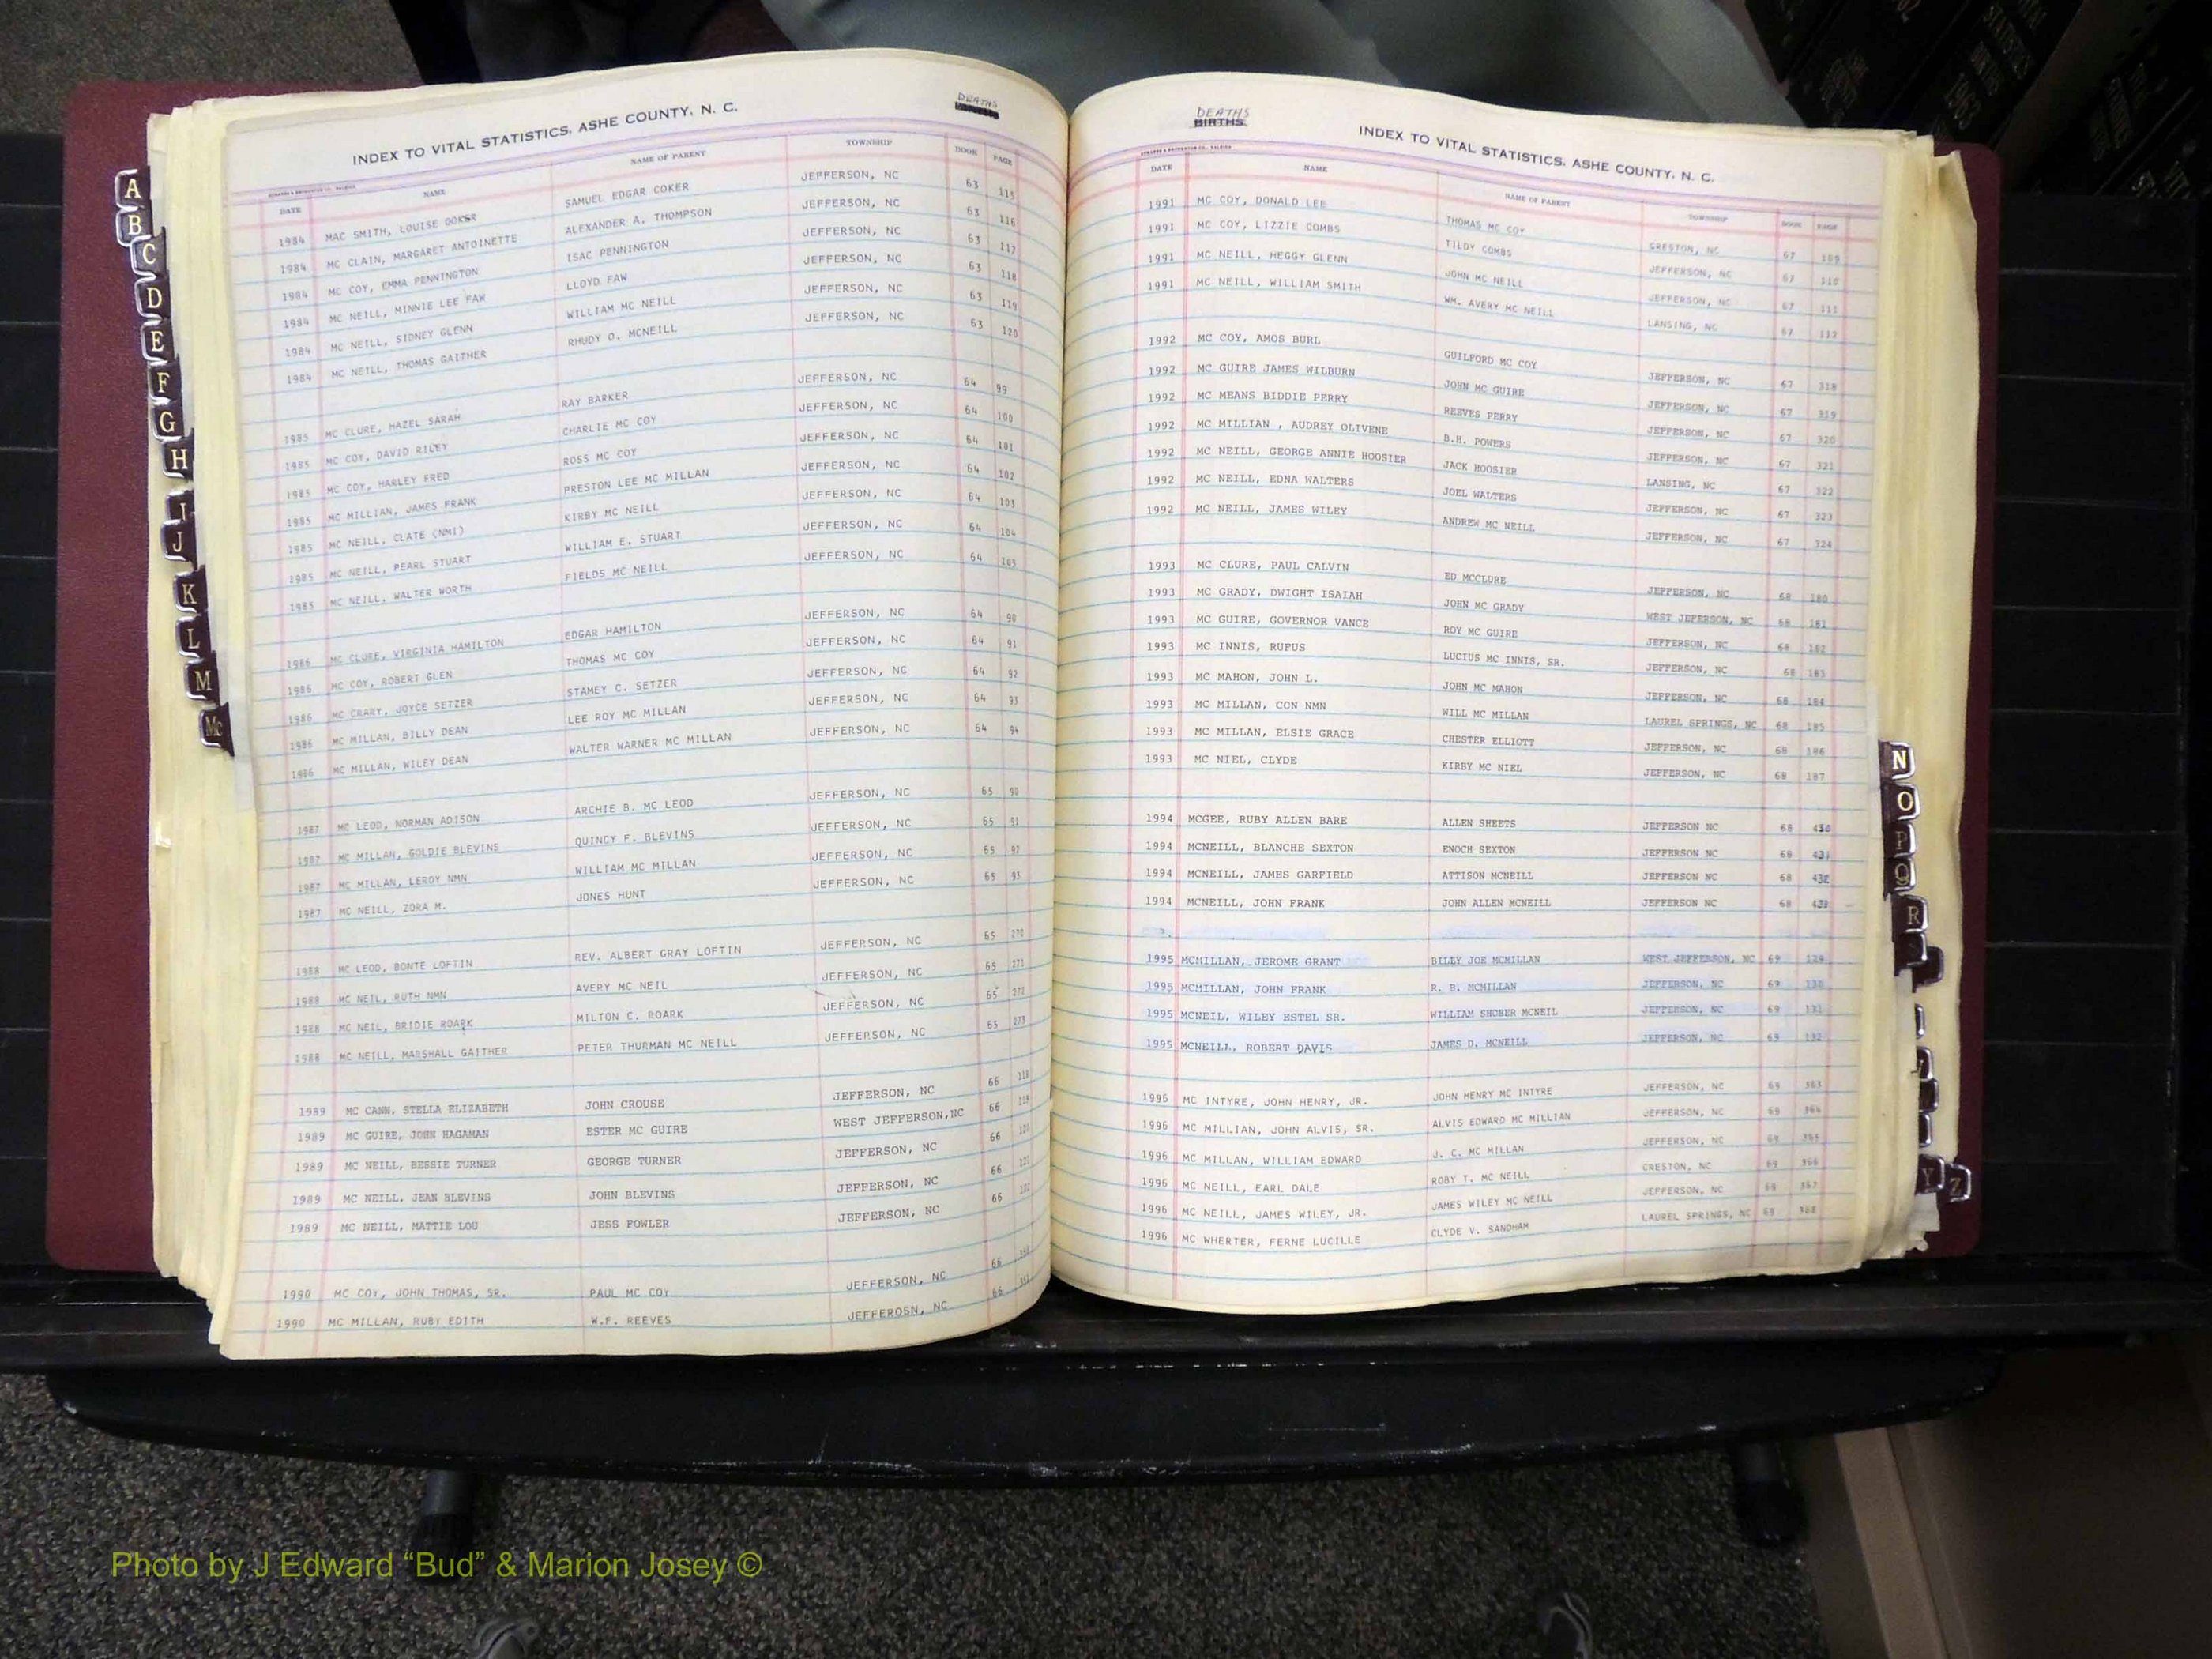 DEATHS
INDEX TO VITAL STATISTICS, ASHE COUNTY, N. C.
DATE NAME NAME OF PARENT TOWNSHIP BOOK PAGE
1984 MAC SMITH, LOUISE COKER SAMUEL EDGAR COKER JEFFERSON, NC 63 115
1984 MC CLAIN, MARGARET ANTOINETTE ALEXANDER A. THOMPSON JEFFERSON, NC 63 116
1984 MC COY, EMMA PENNINGTON ISAC PENNINGTON JEFFERSON, NC 63 117
1984 MC NEILL, MINNIE LEE FAW LLOYD FAW JEFFERSON, NC 63 118
1984 MC NEILL, SIDNEY GLENN WILLIAM MC NEILL JEFFERSON, NC 63 119
1984 MC NEILL, THOMAS GAITHER RHUDY O. MCNEILL JEFFERSON, NC 63 120
1985 MC CLURE, HAZEL SARAH RAY BARKER JEFFERSON, NC 64 99
1985 MC COY, DAVID RILEY CHARLIE MC COY JEFFERSON, NC 64 100
1985 MC COY, HARLEY FRED ROSS MC COY JEFFERSON, NC 64 101
1985 MC MILLIAN, JAMES FRANK PRESTON LEE MC MILLAN JEFFERSON, NC 64 102
1985 MC NEILL, CLATE (NMI) KIRBY MC NEILL JEFFERSON, NC 64 103
1985 MC NEILL, PEARL STUART WILLIAM E. STUART JEFFERSON, NC 64 104
1985 MC NEILL, WALTER WORTH FIELDS MC NEILL JEFFERSON, NC 64 105
1986 MC CLURE, VIRGINIA HAMILTON EDGAR HAMILTON JEFFERSON, NC 64 90
1986 MC COY, ROBERT GLEN THOMAS MC COY JEFFERSON, NC 64 91
1986 MC CRARY, JOYCE SETZER STAMEY C. SETZER JEFFERSON, NC 64 92
1986 MC MILLAN, BILLY DEAN LEE ROY MC MILLAN JEFFERSON, NC 64 93
1986 MC MILLAN, WILEY DEAN WALTER WARNER MC MILLAN JEFFERSON, NC 64 94
1987 MC LEOD, NORMAN ADISON ARCHIE B. MC LEOD JEFFERSON, NC 65 90
1987 MC MILLAN, GOLDIE BLEVINS QUINCY F. BLEVINS JEFFERSON, NC 65 91
1987 MC MILLAN, LEROY NMN WILLIAM MC MILLAN JEFFERSON, NC 65 92
1987 MC NEILL, ZORA M. JONES HUNT JEFFERSON, NC 65 93
1988 MC LEOD, BONTE LOFTIN REV. ALBERT GRAY LOFTIN JEFFERSON, NC 65 270
1988 MC NEIL, RUTH NMN AVERY MC NEIL JEFFERSON, NC 65 271
1988 MC NEIL, BRIDIE ROARK MILTON C. ROARK JEFFERSON, NC 65 272
1988 MC NEILL, MARSHALL GAITHER PETER THURMAN MC NEILL JEFFERSON, NC 65 273
1989 MC CANN, STELLA ELIZABETH JOHN CROUSE JEFFERSON, NC 66 118
1989 MC GUIRE, JOHN HAGAMAN ESTER MC GUIRE WEST JEFFERSON,NC 66 119
1989 MC NEILL, BESSIE TURNER GEORGE TURNER JEFFERSON, NC 66 120
1989 MC NEILL, JEAN BLEVINS JOHN BLEVINS JEFFERSON, NC 66 121
1989 MC NEILL, MATTIE LOU JESS FOWLER JEFFERSON, NC 66 122
1990 MC COY, JOHN THOMAS, SR. PAUL MC COY JEFFERSON, NC 66
1990 MC MILLAN, RUBY EDITH W.F. REEVES JEFFEROSN, NC 66
DEATHS
BIRTHS
INDEX TO VITAL STATISTICS, ASHE COUNTY, N. C.
DATE NAME NAME OF PARENT TOWNSHIP BOOK PAGE
1991 MC COY, DONALD LEE THOMAS MC COY CRESTON, NC 67 109
1991 MC COY, LIZZIE COMBS TILDY COMBS JEFFERSON, NC 67 110
1991 MC NEILL, HEGGY GLENN JOHN MC NEILL JEFFERSON, NC 67 111
1991 MC NEILL, WILLIAM SMITH WM. AVERY MC NEILL LANSING, NC 67 112
1992 MC COY, AMOS BURL GUILFORD MC COY JEFFERSON, NC 67 318
1992 MC GUIRE JAMES WILBURN JOHN MC GUIRE JEFFERSON, NC 67 319
1992 MC MEANS BIDDIE PERRY REEVES PERRY JEFFERSON, NC 67 320
1992 MC MILLIAN , AUDREY OLIVENE B.H. POWERS JEFFERSON, NC 67 321
1992 MC NEILL, GEORGE ANNIE HOOSIER JACK HOOSIER LANSING, NC 67 322
1992 MC NEILL, EDNA WALTERS JOEL WALTERS JEFFERSON, NC 67 323
1992 MC NEILL, JAMES WILEY ANDREW MC NEILL JEFFERSON, NC 67 324
1993 MC CLURE, PAUL CALVIN ED MCCLURE JEFFERSON, NC 68 180
1993 MC GRADY, DWIGHT ISAIAH JOHN MC GRADY WEST JEFERSON, NC 68 181
1993 MC GUIRE, GOVERNOR VANCE ROY MC GUIRE JEFFERSON, NC 68 182
1993 MC INNIS, RUFUS LUCIUS MC INNIS, SR. JEFFERSON, NC 68 183
1993 MC MAHON, JOHN L. JOHN MC MAHON JEFFERSON, NC 68 184
1993 MC MILLAN, CON NMN WILL MC MILLAN LAUREL SPRINGS, NC 68 185
1993 MC MILLAN, ELSIE GRACE CHESTER ELLIOTT JEFFERSON, NC 68 186
1993 MC NIEL, CLYDE KIRBY MC NIEL JEFFERSON, NC 68 187
1994 MCGEE, RUBY ALLEN BARE ALLEN SHEETS JEFFERSON NC 68 430
1994 MCNEILL, BLANCHE SEXTON ENOCH SEXTON JEFFERSON NC 68 431
1994 MCNEILL, JAMES GARFIELD ATTISON MCNEILL JEFFERSON NC 68 432
1994 MCNEILL, JOHN FRANK JOHN ALLEN MCNEILL JEFFERSON NC 68 433
1995 MCMILLAN, JEROME GRANT BILLY JOE MCMILLAN WEST JEFFERSON, NC 69 129
1995 MCMILLAN, JOHN FRANK R. B. MCMILLAN JEFFERSON, NC 69 130
1995 MCNEIL, WILEY ESTEL SR. WILLIAM SHOBER MCNEIL JEFFERSON, NC 69 131
1995 MCNEILL, ROBERT DAVIS JAMES D. MCNEILL JEFFERSON, NC 69 132
1996 MC INTYRE, JOHN HENRY, JR. JOHN HENRY MC INTYRE JEFFERSON, NC 69 363
1996 MC MILLIAN, JOHN ALVIS, SR. ALVIS EDWARD MC MILLIAN JEFFERSON, NC 69 364
1996 MC MILLAN, WILLIAM EDWARD J. C. MC MILLAN JEFFERSON, NC 69 365
1996 MC NEILL, EARL DALE ROBY T. MC NEILL CRESTON, NC 69 366
1996 MC NEILL, JAMES WILEY, JR. JAMES WILEY MC NEILL JEFFERSON, NC 69 367
1996 MC WHERTER, FERNE LUCILLE CLYDE V. SANDHAM LAUREL SPRINGS, NC 69 368
A
B
C
D
E
F
G
H
I
J
K
L
M
Mc
N
O
P
Q
R
Y
Z
1963
Photo by J Edward “Bud” & Marion Josey ©